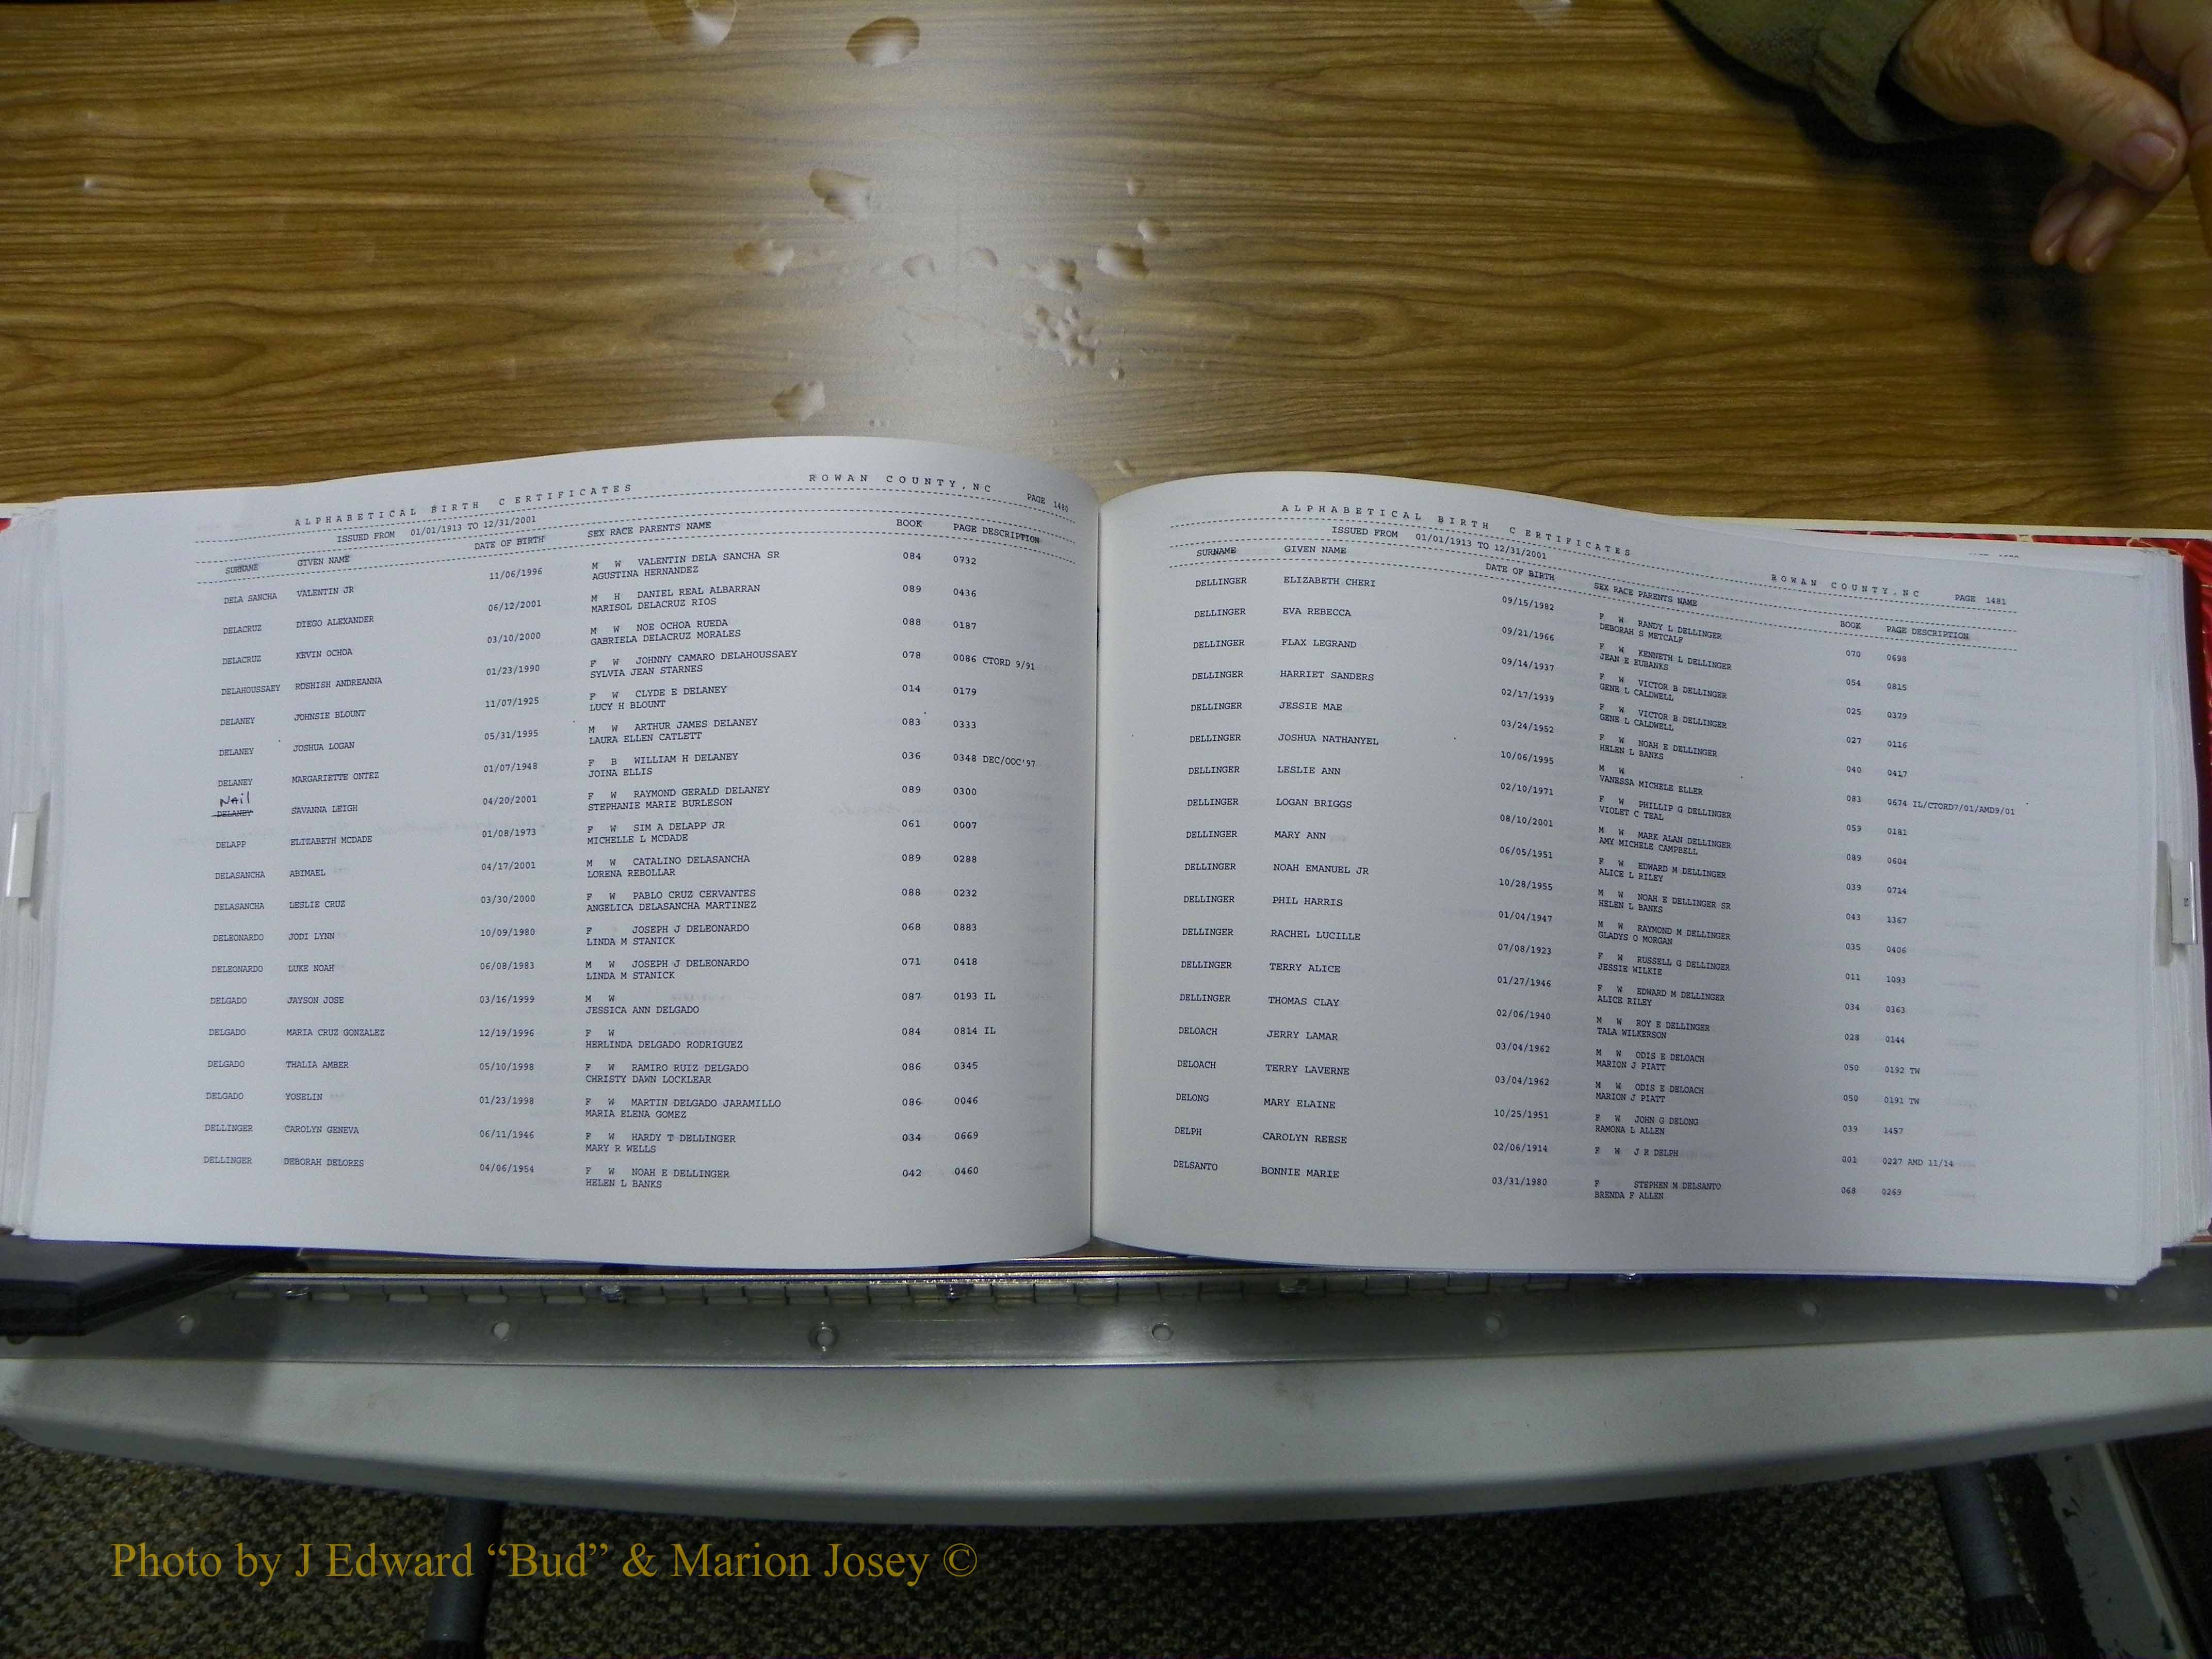 ALPHABETICAL BIRTH CERTIFICATES ROWAN COUNTY, NC PAGE 1480
ISSUED FROM 01/01/1913 TO 12/31/2001
SURNAME GIVEN NAME DATE OF BIRTH SEX RACE PARENTS NAME BOOK PAGE DESCRIPTION
DELA SANCHA VALENTIN JR 11/06/1996 M W VALENTIN DELA SANCHA SR 084 0732
AGUSTINA HERNANDEZ
DELACRUZ DIEGO ALEXANDER 06/12/2001 M H DANIEL REAL ALBARRAN 089 0436
MARISOL DELACRUZ RIOS
DELACRUZ KEVIN OCHOA 03/10/2000 M W NOE OCHOA RUEDA 088 0187
GABRIELA DELACRUZ MORALES
DELAHOUSSAEY ROSHISH ANDREANNA 01/23/1990 F W JOHNNY CAMARO DELAHOUSSAEY 078 0086 CTORD 9/91
SYLVIA JEAN STARNES
DELANEY JOHNSIE BLOUNT 11/07/1925 F W CLYDE E DELANEY 014 0179
LUCY H BLOUNT
DELANEY JOSHUA LOGAN 05/31/1995 M W ARTHUR JAMES DELANEY 083 0333
LAURA ELLEN CATLETT
DELANEY MARGARIETTE ONTEZ 01/07/1948 F B WILLIAM H DELANEY 036 0348 DEC/OOC'97
JOINA ELLIS
Nail
DELANEY SAVANNA LEIGH 04/20/2001 F W RAYMOND GERALD DELANEY 089 0300
STEPHANIE MARIE BURLESON
DELAPP ELIZABETH MCDADE 01/08/1973 F W SIM A DELAPP JR 061 0007
MICHELLE L MCDADE
DELASANCHA ABIMAEL 04/17/2001 M W CATALINO DELASANCHA 089 0288
LORENA REBOLLAR
DELASANCHA LESLIE CRUZ 03/30/2000 F W PABLO CRUZ CERVANTES 088 0232
ANGELICA DELASANCHA MARTINEZ
DELEONARDO JODI LYNN 10/09/1980 F JOSEPH J DELEONARDO 068 0883
LINDA M STANICK
DELEONARDO LUKE NOAH 06/08/1983 M W JOSEPH J DELEONARDO 071 0418
LINDA M STANICK
DELGADO JAYSON JOSE 03/16/1999 M W 087 0193 IL
JESSICA ANN DELGADO
DELGADO MARIA CRUZ GONZALEZ 12/19/1996 F W 084 0814 IL
HERLINDA DELGADO RODRIGUEZ
DELGADO THALIA AMBER 05/10/1998 F W RAMIRO RUIZ DELGADO 086 0345
CHRISTY DAWN LOCKLEAR
DELGADO YOSELIN 01/23/1998 F W MARTIN DELGADO JARAMILLO 086 0046
MARIA ELENA GOMEZ
DELLINGER CAROLYN GENEVA 06/11/1946 F W HARDY T DELLINGER 034 0669
MARY R WELLS
DELLINGER DEBORAH DELORES 04/06/1954 F W NOAH E DELLINGER 042 0460
HELEN L BANKS
ALPHABETICAL BIRTH CERTIFICATES ROWAN COUNTY, NC PAGE 1481
ISSUED FROM 01/01/1913 TO 12/31/2001
SURNAME GIVEN NAME DATE OF BIRTH SEX RACE PARENTS NAME BOOK PAGE DESCRIPTION
DELLINGER ELIZABETH CHERI 09/15/1982 F W RANDY L DELLINGER 070 0698
DEBORAH S METCALF
DELLINGER EVA REBECCA 09/21/1966 F W KENNETH L DELLINGER 054 0815
JEAN E EUBANKS
DELLINGER FLAX LEGRAND 09/14/1937 F W VICTOR B DELLINGER 025 0379
GENE L CALDWELL
DELLINGER HARRIET SANDERS 02/17/1939 F W VICTOR B DELLINGER 027 0116
GENE L CALDWELL
DELLINGER JESSIE MAE 03/24/1952 F W NOAH E DELLINGER 040 0417
HELEN L BANKS
DELLINGER JOSHUA NATHANYEL 10/06/1995 M W 083 0674 IL/CTORD7/01/AMD9/01
VANESSA MICHELE ELLER
DELLINGER LESLIE ANN 02/10/1971 F W PHILLIP G DELLINGER 059 0181
VIOLET C TEAL
DELLINGER LOGAN BRIGGS 08/10/2001 M W MARK ALAN DELLINGER 089 0604
AMY MICHELE CAMPBELL
DELLINGER MARY ANN 06/05/1951 F W EDWARD M DELLINGER 039 0714
ALICE L RILEY
DELLINGER NOAH EMANUEL JR 10/28/1955 M W NOAH E DELLINGER SR 043 1367
HELEN L BANKS
DELLINGER PHIL HARRIS 01/04/1947 M W RAYMOND M DELLINGER 035 0406
GLADYS O MORGAN
DELLINGER RACHEL LUCILLE 07/08/1923 F W RUSSELL G DELLINGER 011 1093
JESSIE WILKIE
DELLINGER TERRY ALICE 01/27/1946 F W EDWARD M DELLINGER 034 0363
ALICE RILEY
DELLINGER THOMAS CLAY 02/06/1940 M W ROY E DELLINGER 028 0144
TALA WILKERSON
DELOACH JERRY LAMAR 03/04/1962 M W ODIS E DELOACH 050 0192 TW
MARION J PIATT
DELOACH TERRY LAVERNE 03/04/1962 M W ODIS E DELOACH 050 0191 TW
MARION J PIATT
DELONG MARY ELAINE 10/25/1951 F W JOHN G DELONG 039 1457
RAMONA L ALLEN
DELPH CAROLYN REESE 02/06/1914 F W J R DELPH 001 0227 AMD 11/14
DELSANTO BONNIE MARIE 03/31/1980 F STEPHEN M DELSANTO 068 0269
BRENDA F ALLEN
Photo by J Edward “Bud” & Marion Josey ©